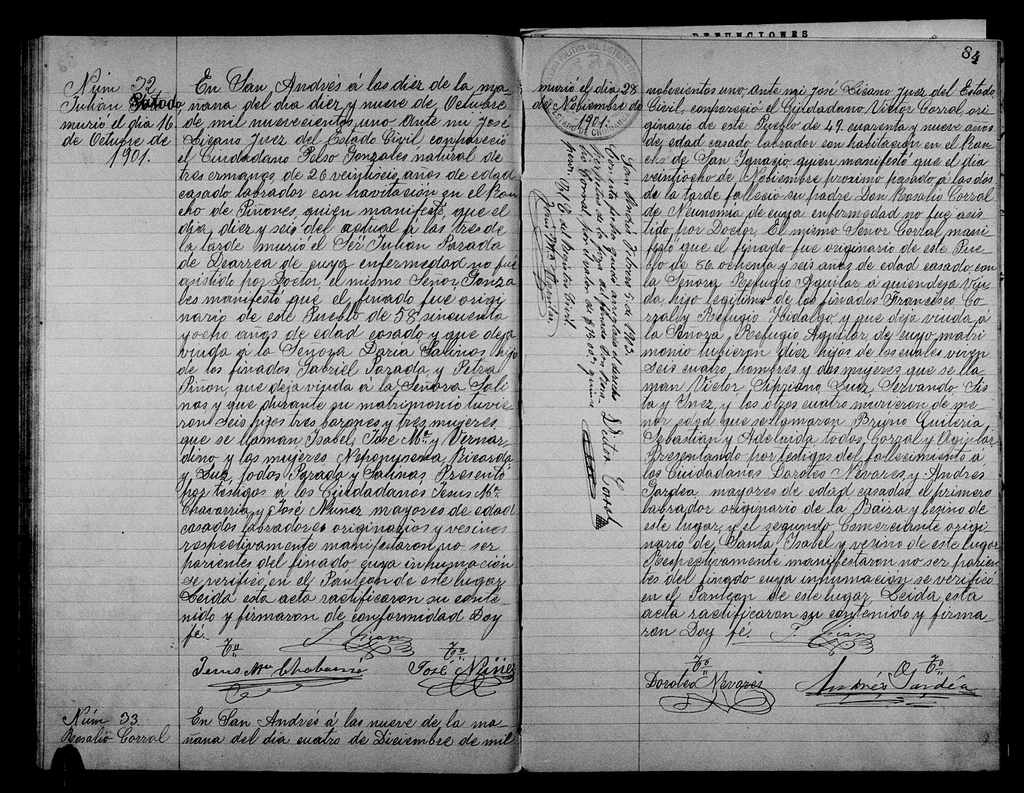 Núm 32.
Julián Posada
murió el dia 16.
de Octubre de
1901.
En San Andrés á las diez de la ma-
ñana del dia diez y nueve de Octubre
de mil novecientos uno. Ante mi José
Licano Juez del Estado Civil compareció
el Ciudadano Gonzales natural de
tres ermanos, de 26 veintiseis, años de edad
casado labrador con havitación en el Ran-
cho de Piñones, quien manifestó, que el
dia, diez y seis del actual á las tres de
la tarde murió el Sr. Julian Posada
de Diarrea de cuya enfermedad no fue
asistido por Doctor. el mismo Señor Gonza-
les manifestó que el finado fue origi-
nario de este Pueblo de 58 sincuenta
yocho años de edad casado y que deja
viuda á la Señora Daria Salinas hijo
de los finados Gabriel Posada y Petra
Piñon, que deja viuda á la Señora Sali-
nas y que durante su matrimonio tuvie-
ron seis hijos tres barones y tres mujeres,
que se llaman Isabel, José Ma. y Vernar-
dino y las mujeres Neponusema Ricarda
y Luz, todos Posada y Salinas. Presentó
por testigos á los Ciudadanos Jesus Ma.
Chavarria y José Nuñez mayores de edad
casados labradores originarios y vesinos
respectivamente manifestaron no ser
parientes del finado cuya inhumación
se verificó en el Panteon de este lugar.
Leida esta acta ractificaron su conte-
nido y firmaron de conformidad Doy
fé.
J. Licano
To. To.
Jesus Ma. Chabarria José Nuñez
Núm 33.
Rosalio Corral
En San Andrés á las nueve de la ma-
ñana del dia cuatro de Diciembre de mil
DEFUNCIONES
84
murió el dia 28
de Noviembre de
1901.
San Andrés Febrero 5 de 1903.
Victor Corral
novecientos uno. Ante mi José Licano Juez del Estado
Civil, compareció el Ciudadano Victor Corral, ori-
ginario de este Pueblo de 49. cuarenta y nueve años
de edad casado labrador con habitacion en el Ran-
cho de San Ignacio quien manifestó que el dia
veintiocho de Nobiembre proximo pasado á las dos
de la tarde falleció su padre Don Rosalio Corral
de Neunomia de cuya enfermedad no fue asis-
tido por Doctor. El mismo Señor Corral mani-
festo que el finado fue originario de este Pue-
blo de 86 ochenta y seis años de edad casado con
la Señora Refugio Aguilar á quien deja Viu-
da, hijo legitimo de los finados Francisco Co-
rral y Refugio Hidalgo y que deja viuda á
la Señora, Refugio Aguilar de cuyo matri-
monio tubieron diez hijos de los cuales viven
seis cuatro, hombres y dos mujeres, que se lla-
man Victor Sipriano Luis Servando Sis-
ta y Ynez, y los otros cuatro murieron de me-
nor edad que se llamaron Bruno Quiteria
Sebastian y Adelaida todos Corral y Aguilar
Presentando por testigos del fallecimiento á
los Ciudadanos Doroteo Nevares, y Andrés
Gardea mayores de edad casados, el primero
labrador originario de la Baiza y bezino de
este lugar, y el segundo, Comerciante origi-
nario de Santa Isabel y vezino de este lugar
Respectivamente manifestaron no ser parien-
tes del finado cuya inhumación se verificó
en el Panteon de este lugar, Leida esta
acta ractificaron su contenido y firma-
ron Doy fé.
J. Licano
To. To.
Doroteo Nevares Andrés Gardéa